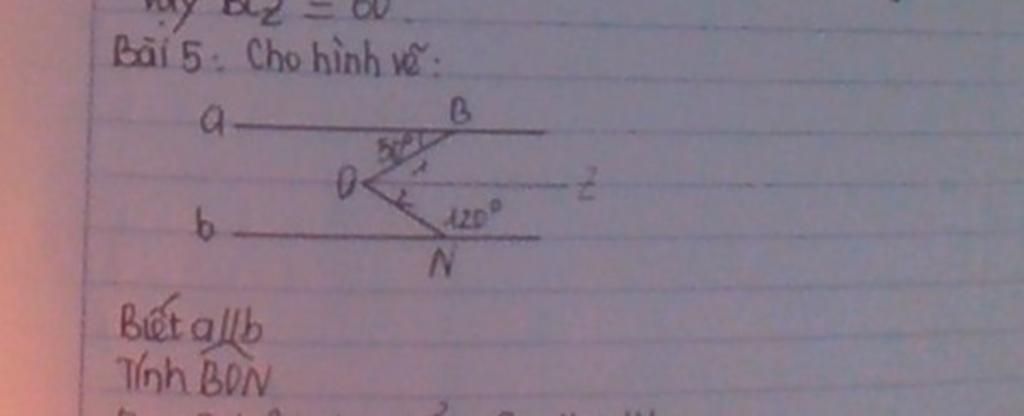 Vậy = 60
Bài 5: Cho hình vẽ:
a B
50° 1
O z
2 120°
b
N
Biết a//b
Tính BON